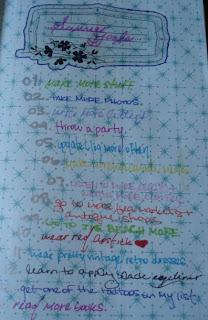 Summer Goals...
01. MAKE MORE STUFF
02. TAKE MORE PHOTOS.
03. WRITE MORE LETTERS
04. throw a party.
05. update blog more often.
06.
07. LISTEN TO MORE
08. go to more flea markets +
antique shops.
09. GO TO THE BEACH MORE
10. wear red lipstick
11. wear pretty vintage, retro dresses
learn to apply black eyeliner
get one of the tattoos on my list
read MORE books.